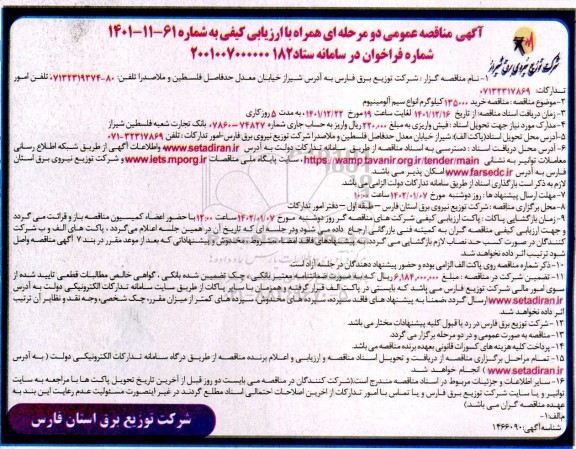 آگهی مناقصه عمومی دو مرحله ای همراه با ارزیابی کیفی به شماره ۶۱-۱۱-۱۴۰۱
شماره فراخوان در سامانه ستاد ۲۰۰۱۰۰۷۰۰۰۰۰۰۱۸۲
شرکت توزیع نیروی برق شیراز
۱- نام مناقصه گزار: شرکت توزیع برق فارس به آدرس شیراز خیابان معدل حدفاصل فلسطین و ملاصدرا تلفن: ۸۰-۰۷۱۳۲۳۱۹۳۷۴ تلفن امور
تدارکات: ۰۷۱۳۲۳۱۷۸۶۹
۲- موضوع مناقصه: مناقصه خرید ۱۳۵۰۰۰ کیلوگرم انواع سیم آلومینیوم
۳- زمان دریافت اسناد مناقصه: از تاریخ ۱۴۰۱/۱۲/۱۶ لغایت ساعت ۱۹ مورخ ۱۴۰۱/۱۲/۲۲ به مدت ۵ روز کاری
۴- مدارک مورد نیاز جهت تحویل اسناد: فیش واریزی به مبلغ ۲۲۰,۰۰۰ ریال واریز به حساب جاری شماره ۷۴۸۲۷-۰۷۸۶۰ بانک تجارت شعبه فلسطین شیراز
۵- آدرس محل تحویل اسناد (پاکت الف): شیراز خیابان معدل حدفاصل فلسطین و ملاصدرا شرکت توزیع نیروی برق فارس-امور تدارکات: تلفن ۳۲۳۱۷۸۶۹-۰۷۱
۶- آدرس محل دریافت اسناد: دسترسی به اسناد مناقصه از طریق سامانه تدارکات دولت به آدرس www.setadiran.ir واطلاعات آگهی از طریق شبکه اطلاع رسانی
معاملات توانیر به نشانی https://wamp.tavanir.org.ir/tender/main، سایت پایگاه ملی مناقصات www.iets.mporg.ir و شرکت توزیع نیروی برق استان
فارس به آدرس www.farsedc.ir امکان پذیر می باشد.
لازم به ذکر است بارگذاری اسناد از طریق سامانه تدارکات دولت الزامی می باشد.
۷- مهلت ارسال پیشنهاد ها: روز دوشنبه مورخ ۱۴۰۲/۰۱/۰۷ ساعت ۱۰:۰۰
۸- محل برگزاری مناقصه: شرکت توزیع نیروی برق استان فارس - طبقه اول - دفتر امور تدارکات
۹- زمان بازگشایی پاکات: پاکت ارزیابی کیفی شرکت های مناقصه گر روز دوشنبه مورخ ۱۴۰۲/۰۱/۰۷ ساعت ۱۲:۰۰ با حضور اعضاء کمیسیون مناقصه باز و قرائت می گردد
و جهت ارزیابی کیفی مناقصه گران به کمیته فنی بازرگانی ارجاع داده می شود ودر جلسه ای که تاریخ آن در همین جلسه اعلام می گردد، پاکت های الف و ب شرکت
کنندگان در صورت کسب حد نصاب لازم بازگشایی می گردد. به پیشنهادهای فاقد امضاء، مشروط، مخدوش و پیشنهاداتی که بعد از موعد مقرر در بند ۷ آگهی مناقصه واصل
شود ترتیب اثر داده نخواهد شد.
۱۰- ذکر شماره مناقصه روی پاکت الف الزامی بوده و حضور پیشنهاد دهندگان در جلسه آزاد است
۱۱- تضمین شرکت در مناقصه: مبلغ ۶,۱۸۴,۰۰۰,۰۰۰ ریال که به صورت ضمانتنامه معتبر بانکی، چک تضمین شده بانکی، گواهی خالص مطالبات قطعی تایید شده از
سوی امور مالی شرکت توزیع برق فارس می باشد که بایستی در پاکت الف قرار گرفته و همزمان با سایر پاکات از طریق سایت سامانه تدارکات الکترونیکی دولت به آدرس
www.setadiran.ir ارسال گردد ضمنا به پیشنهاد های فاقد سپرده، سپرده های مخدوش، سپرده های کمتر از میزان مقرر، چک شخصی، وجه نقد و نظایر آن ترتیب
اثر داده نخواهد شد.
۱۲- شرکت توزیع برق فارس در رد یا قبول کلیه پیشنهادات مختار می باشد.
۱۳- مناقصه به صورت عمومی و در دو مرحله برگزار می گردد.
۱۴- پرداخت کلیه هزینه های کسورات قانونی بعهده برنده مناقصه می باشد.
۱۵- تمام مراحل برگزاری مناقصه از دریافت و تحویل اسناد مناقصه و ارزیابی و اعلام برنده مناقصه از طریق درگاه سامانه تدارکات الکترونیکی دولت (به آدرس
www.setadiran.ir) انجام خواهد شد.
۱۶- سایر اطلاعات و جزئیات مربوط در اسناد مناقصه مندرج است.(شرکت کنندگان در مناقصه می بایست دو روز قبل از آخرین تاریخ تحویل پاکت ها با مراجعه به سایت
توانیر و یا سایت شرکت توزیع برق فارس و یا تماس با امور تدارکات از آخرین اصلاحات احتمالی اسناد مطلع گردند در غیر اینصورت مسئولیت عدم رعایت این بند به
عهده مناقصه گران می باشد)
م الف: ۱۰
شناسه آگهی: ۱۴۶۶۰۹۰
شرکت توزیع برق استان فارس